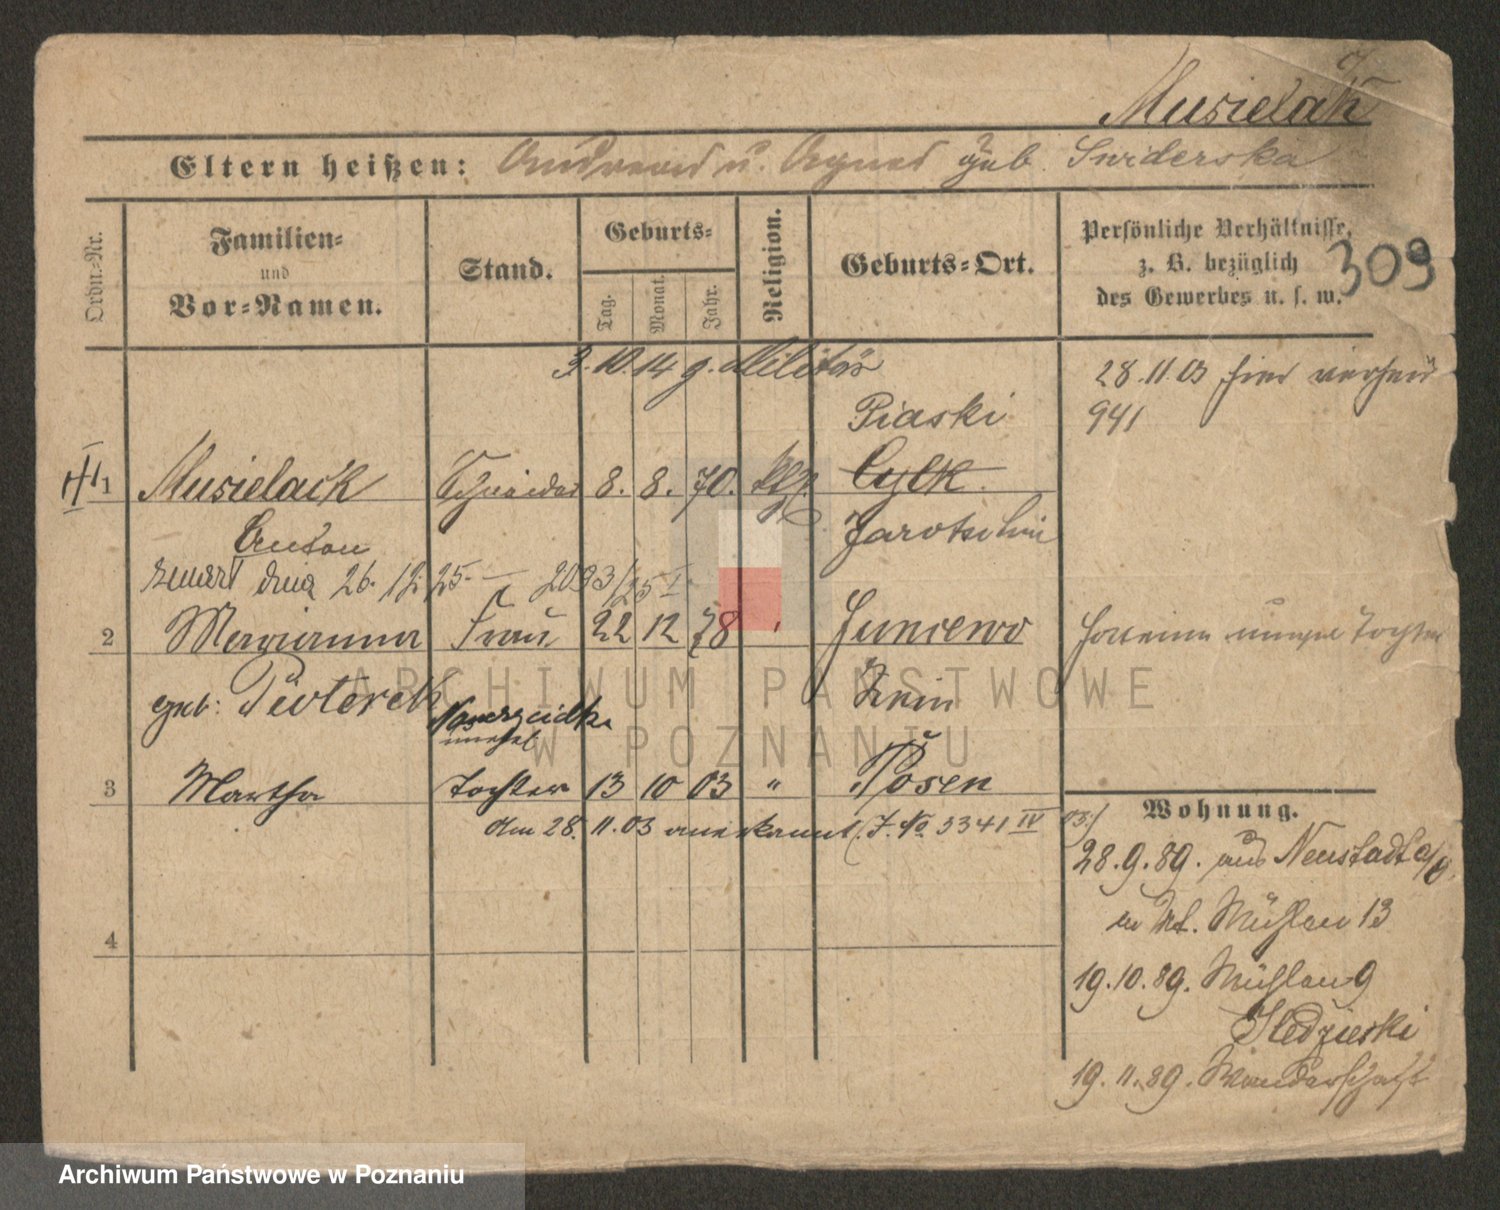 Musielak
Eltern heißen: Andreas u. Agnes geb. Swiderska
Ordn.-Nr.
Familien-
und
Vor-Namen.
Stand.
Geburts-
Tag.
Monat.
Jahr.
Religion.
Geburts-Ort.
Persönliche Verhältnisse,
z. B. bezüglich
des Gewerbes u. s. w.
309
3.10.14 z. Militär
28.11.03 hier verheir
941
Piaski
1 Musielack Schneider 8. 8. 70. Cylk
Anton Jarotschin
zmarł dnia 26.12.25. — 2093/25 I
2 Marianna Frau 22 12 78 Juncewo
geb: Pioterek Znin
unehel
3 Martha Tochter 13 10 03 " Posen
am 28.11.03 anerkannt (J. No 5341 IV 03.)
4
Wohnung.
28.9.89. aus Neustadt
Mühlen 13
19.10.89. Mühlen 9
Sledzieski
19.11.89. Wanderschaft
ARCHIWUM PAŃSTWOWE
W POZNANIU
Archiwum Państwowe w Poznaniu